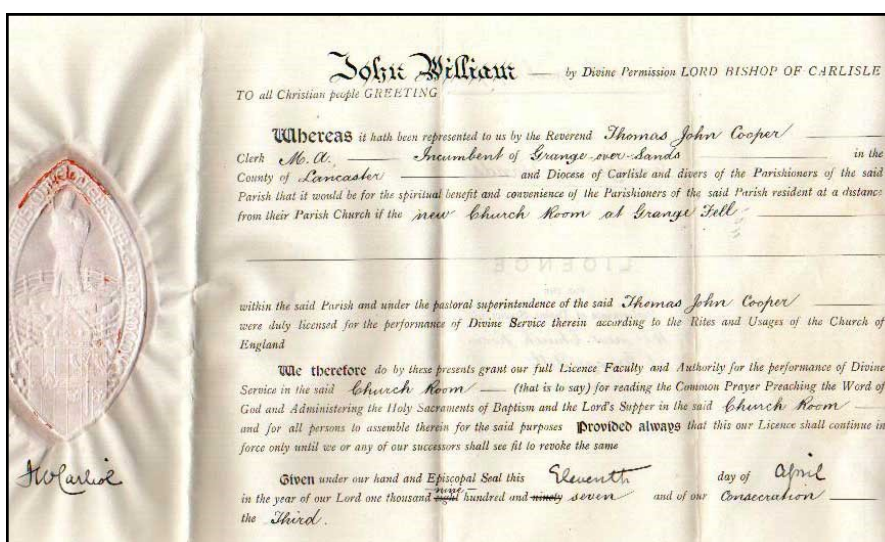 John William — by Divine Permission LORD BISHOP OF CARLISLE
TO all Christian people GREETING
Whereas it hath been represented to us by the Reverend Thomas John Cooper
Clerk M.A. — Incumbent of Grange-over-Sands in the
County of Lancaster and Diocese of Carlisle and divers of the Parishioners of the said
Parish that it would be for the spiritual benefit and convenience of the Parishioners of the said Parish resident at a distance
from their Parish Church if the new Church Room at Grange Fell
LICENCE
within the said Parish and under the pastoral superintendence of the said Thomas John Cooper
were duly licensed for the performance of Divine Service therein according to the Rites and Usages of the Church of
England
We therefore do by these presents grant our full Licence Faculty and Authority for the performance of Divine
Service in the said Church Room — (that is to say) for reading the Common Prayer Preaching the Word of
God and Administering the Holy Sacraments of Baptism and the Lord's Supper in the said Church Room —
and for all persons to assemble therein for the said purposes Provided always that this our Licence shall continue in
force only until we or any of our successors shall see fit to revoke the same
Given under our hand and Episcopal Seal this Eleventh day of April
in the year of our Lord one thousand eight nine hundred and ninety seven and of our Consecration
the Third.
JW Carliol